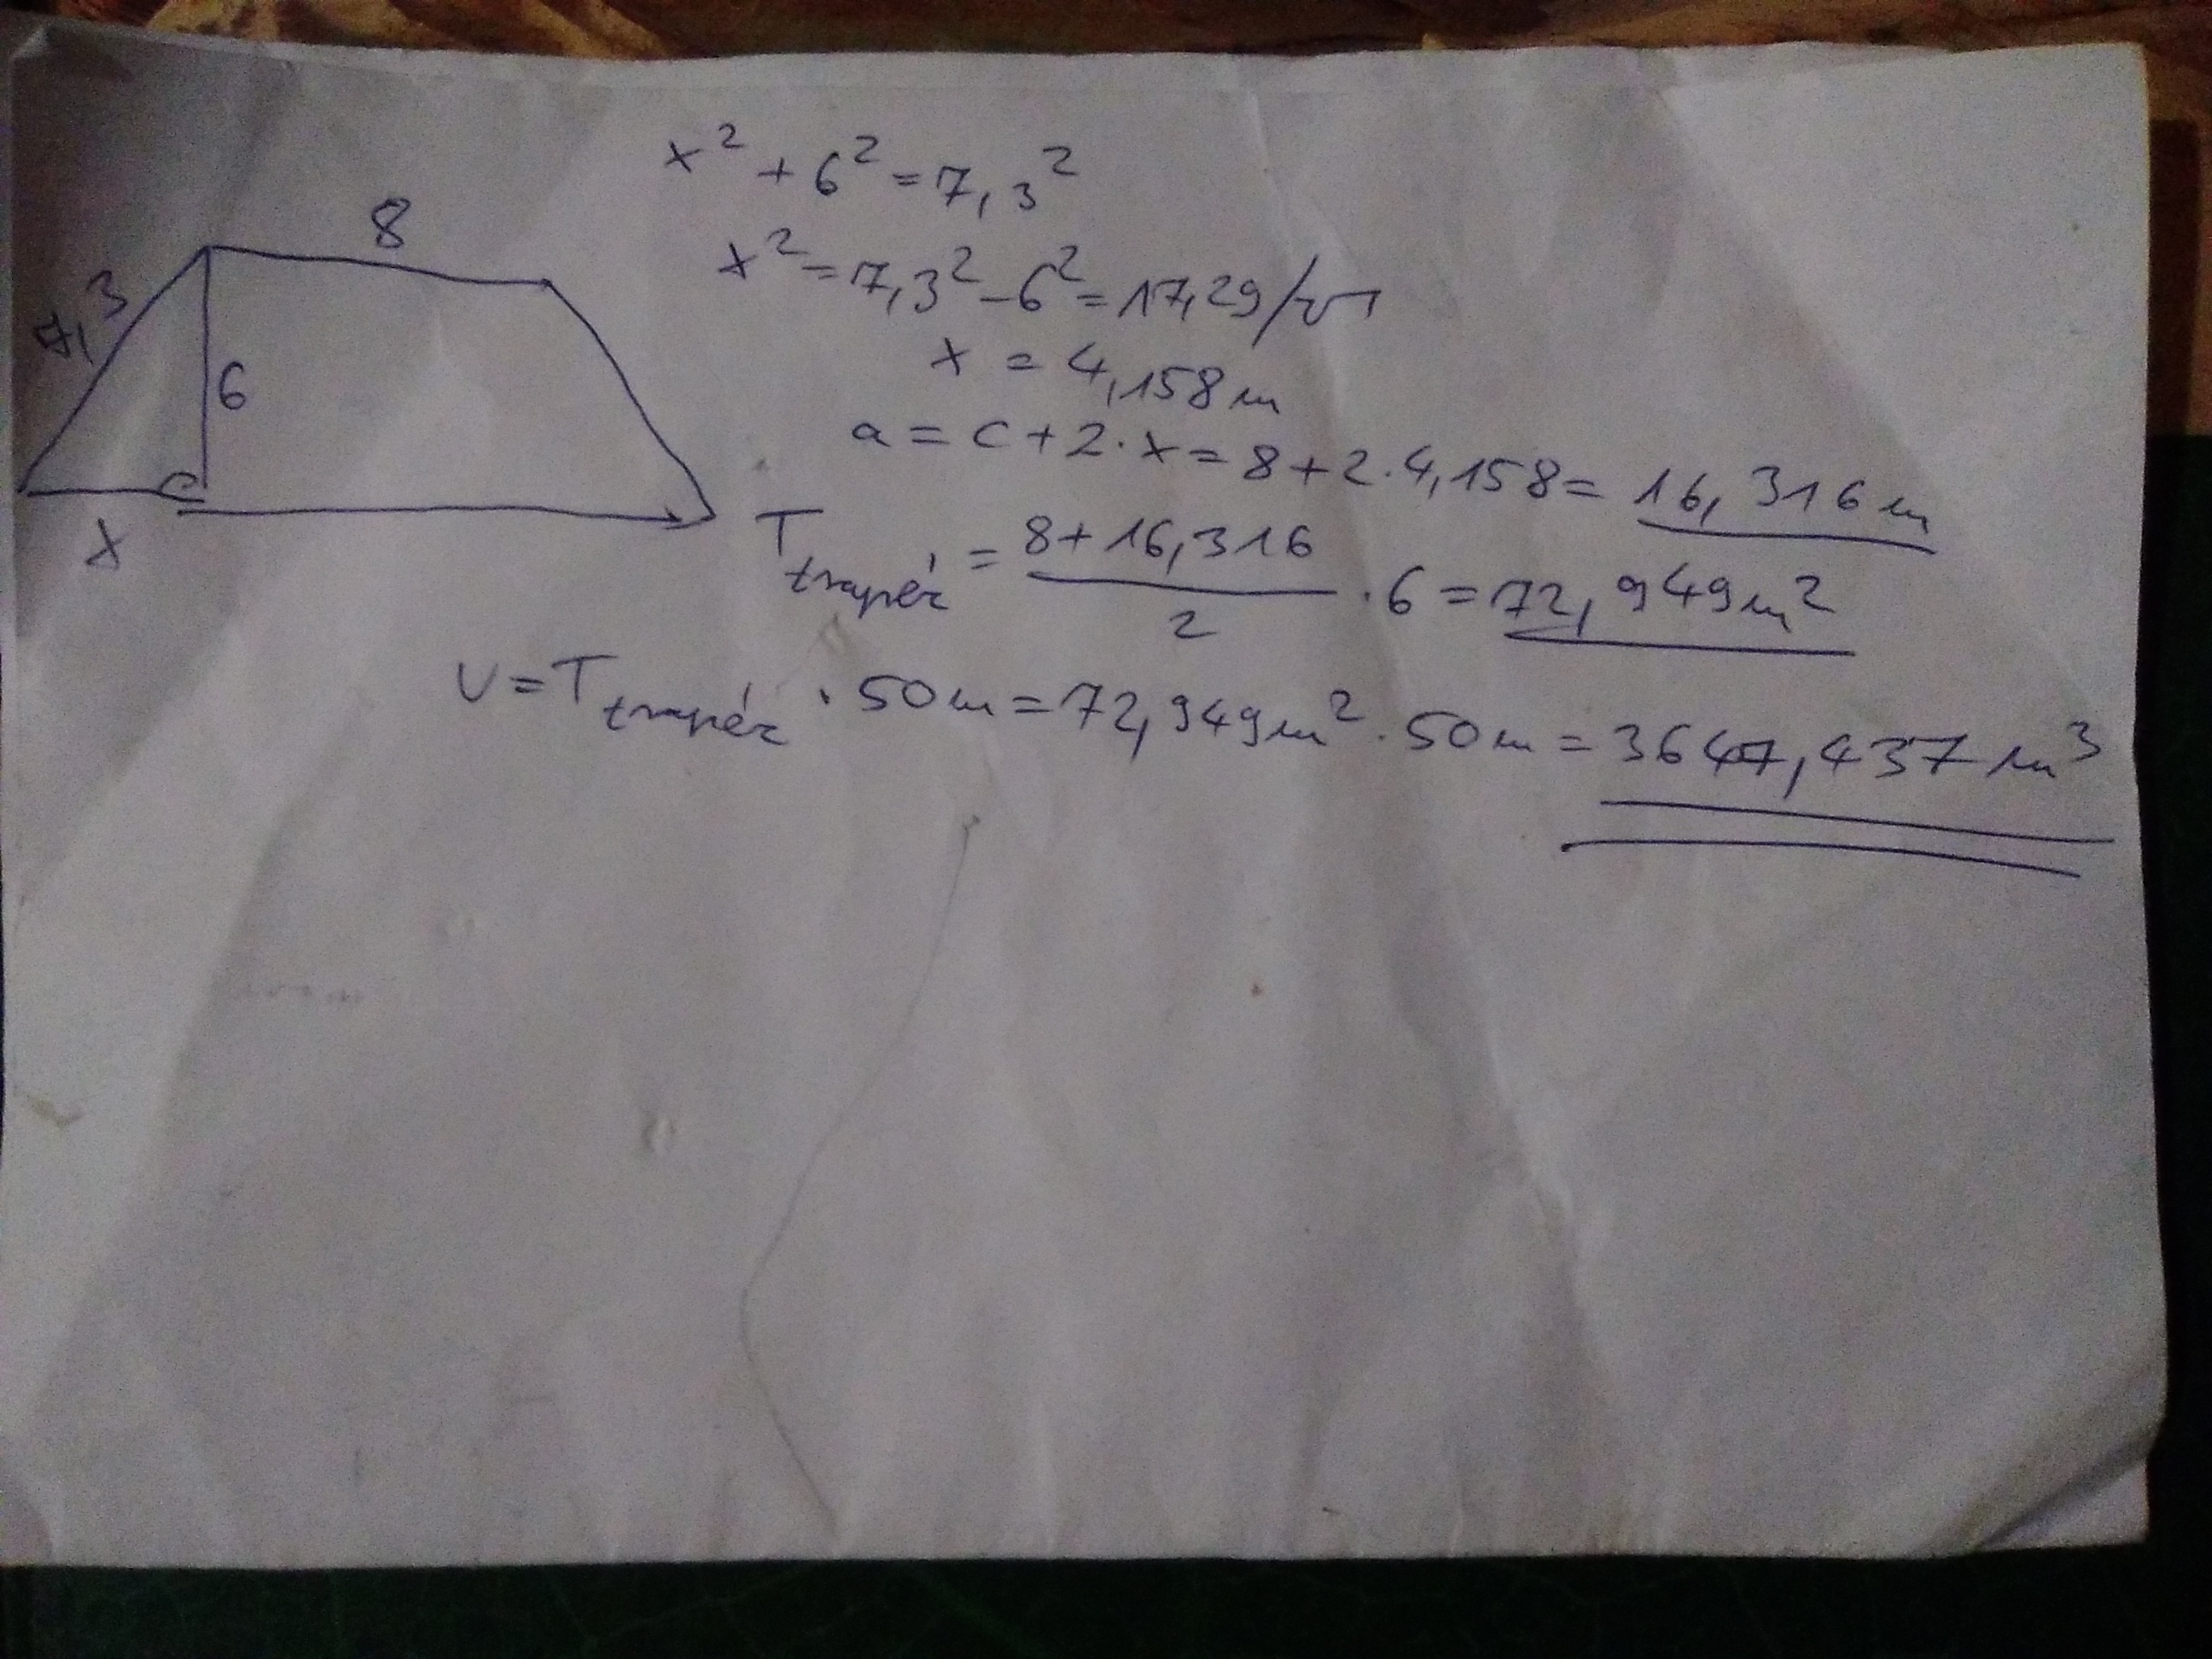 8
7,3
6
x
x² + 6² = 7,3²
x² = 7,3² - 6² = 17,29 /√
x = 4,158 m
a = c + 2 · x = 8 + 2 · 4,158 = 16,316 m
T trapéz = (8 + 16,316) / 2 · 6 = 72,949 m²
V = T trapéz · 50 m = 72,949 m² · 50 m = 3647,437 m³